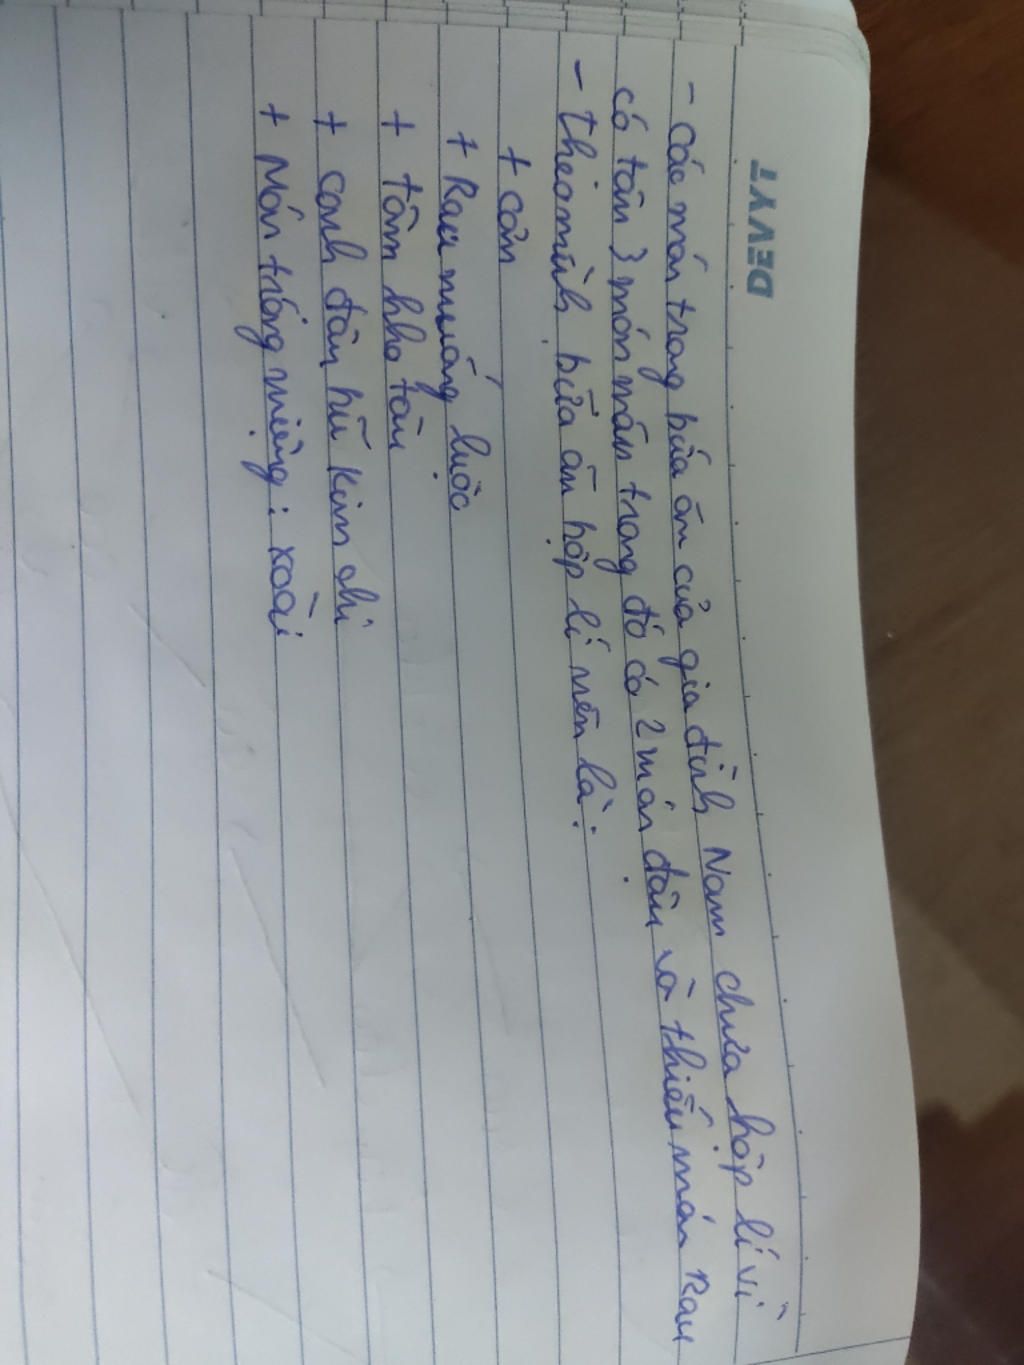 DEVYT
- Các món trong bữa ăn của gia đình Nam chưa hợp lí vì
có tận 3 món mặn trong đó có 2 món đậu và thiếu món Rau
- Theo mình bữa ăn hợp lí nên là:
+ Cơm
+ Rau muống luộc
+ tôm kho tàu
+ canh đậu hũ kim chi
+ Món tráng miệng: xoài